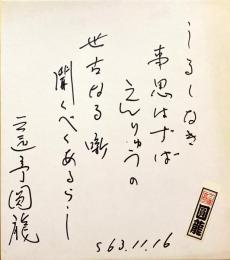 しるしなき
事思はずば
えんりゅうの
世古なる噺
聞くべくあるらし
三遊亭圓龍
S63.11.16
圓龍